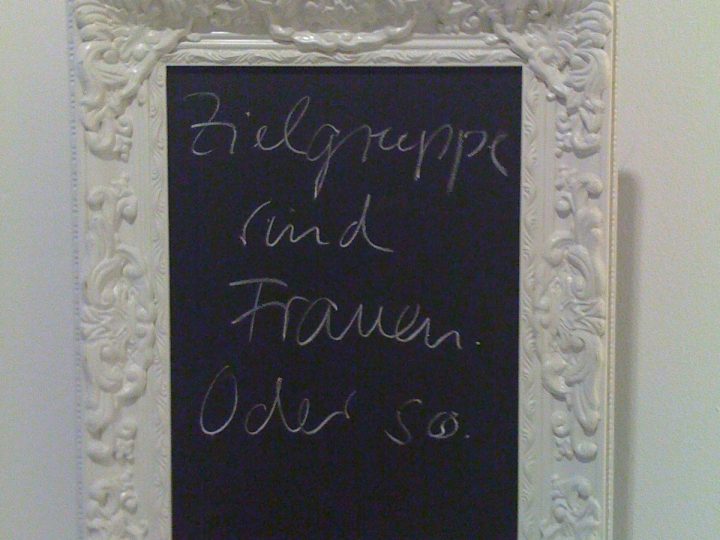 Zielgruppe
sind
Frauen.
Oder so.